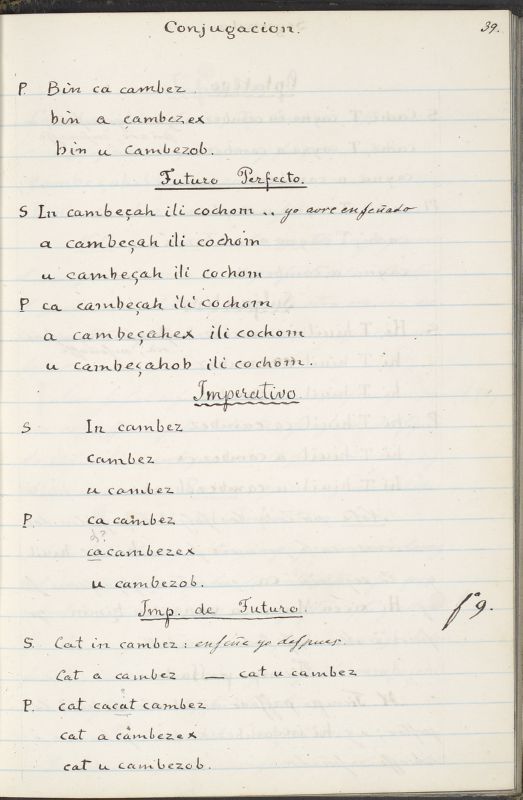 Conjugacion. 39.
P. Bin ca cambez.
bin a cambezex
bin u cambezob.
Futuro Perfecto.
S In cambeçah ili cochom .. yo avre enseñado
a cambeçah ili cochom
u cambeçah ili cochom
P ca cambeçah ili cochom
a cambeçahex ili cochom
u cambeçahob ili cochom.
Imperativo
S In cambez
cambez
u cambez
P. ca cambez
a?
cacambezex
u cambezob.
Imp. de Futuro. fº 9.
S. Cat in cambez: enseñe yo despues.
Cat a cambez — cat u cambez
P. cat cacat cambez
cat a cambezex
cat u cambezob.